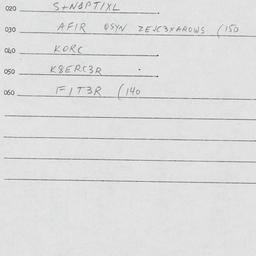 020 S+NAPTIXL
030 AFIR OSYN ZEJC3XAROWS (150
040 KORC
050 K8ERC3R
060 FIT3R (140